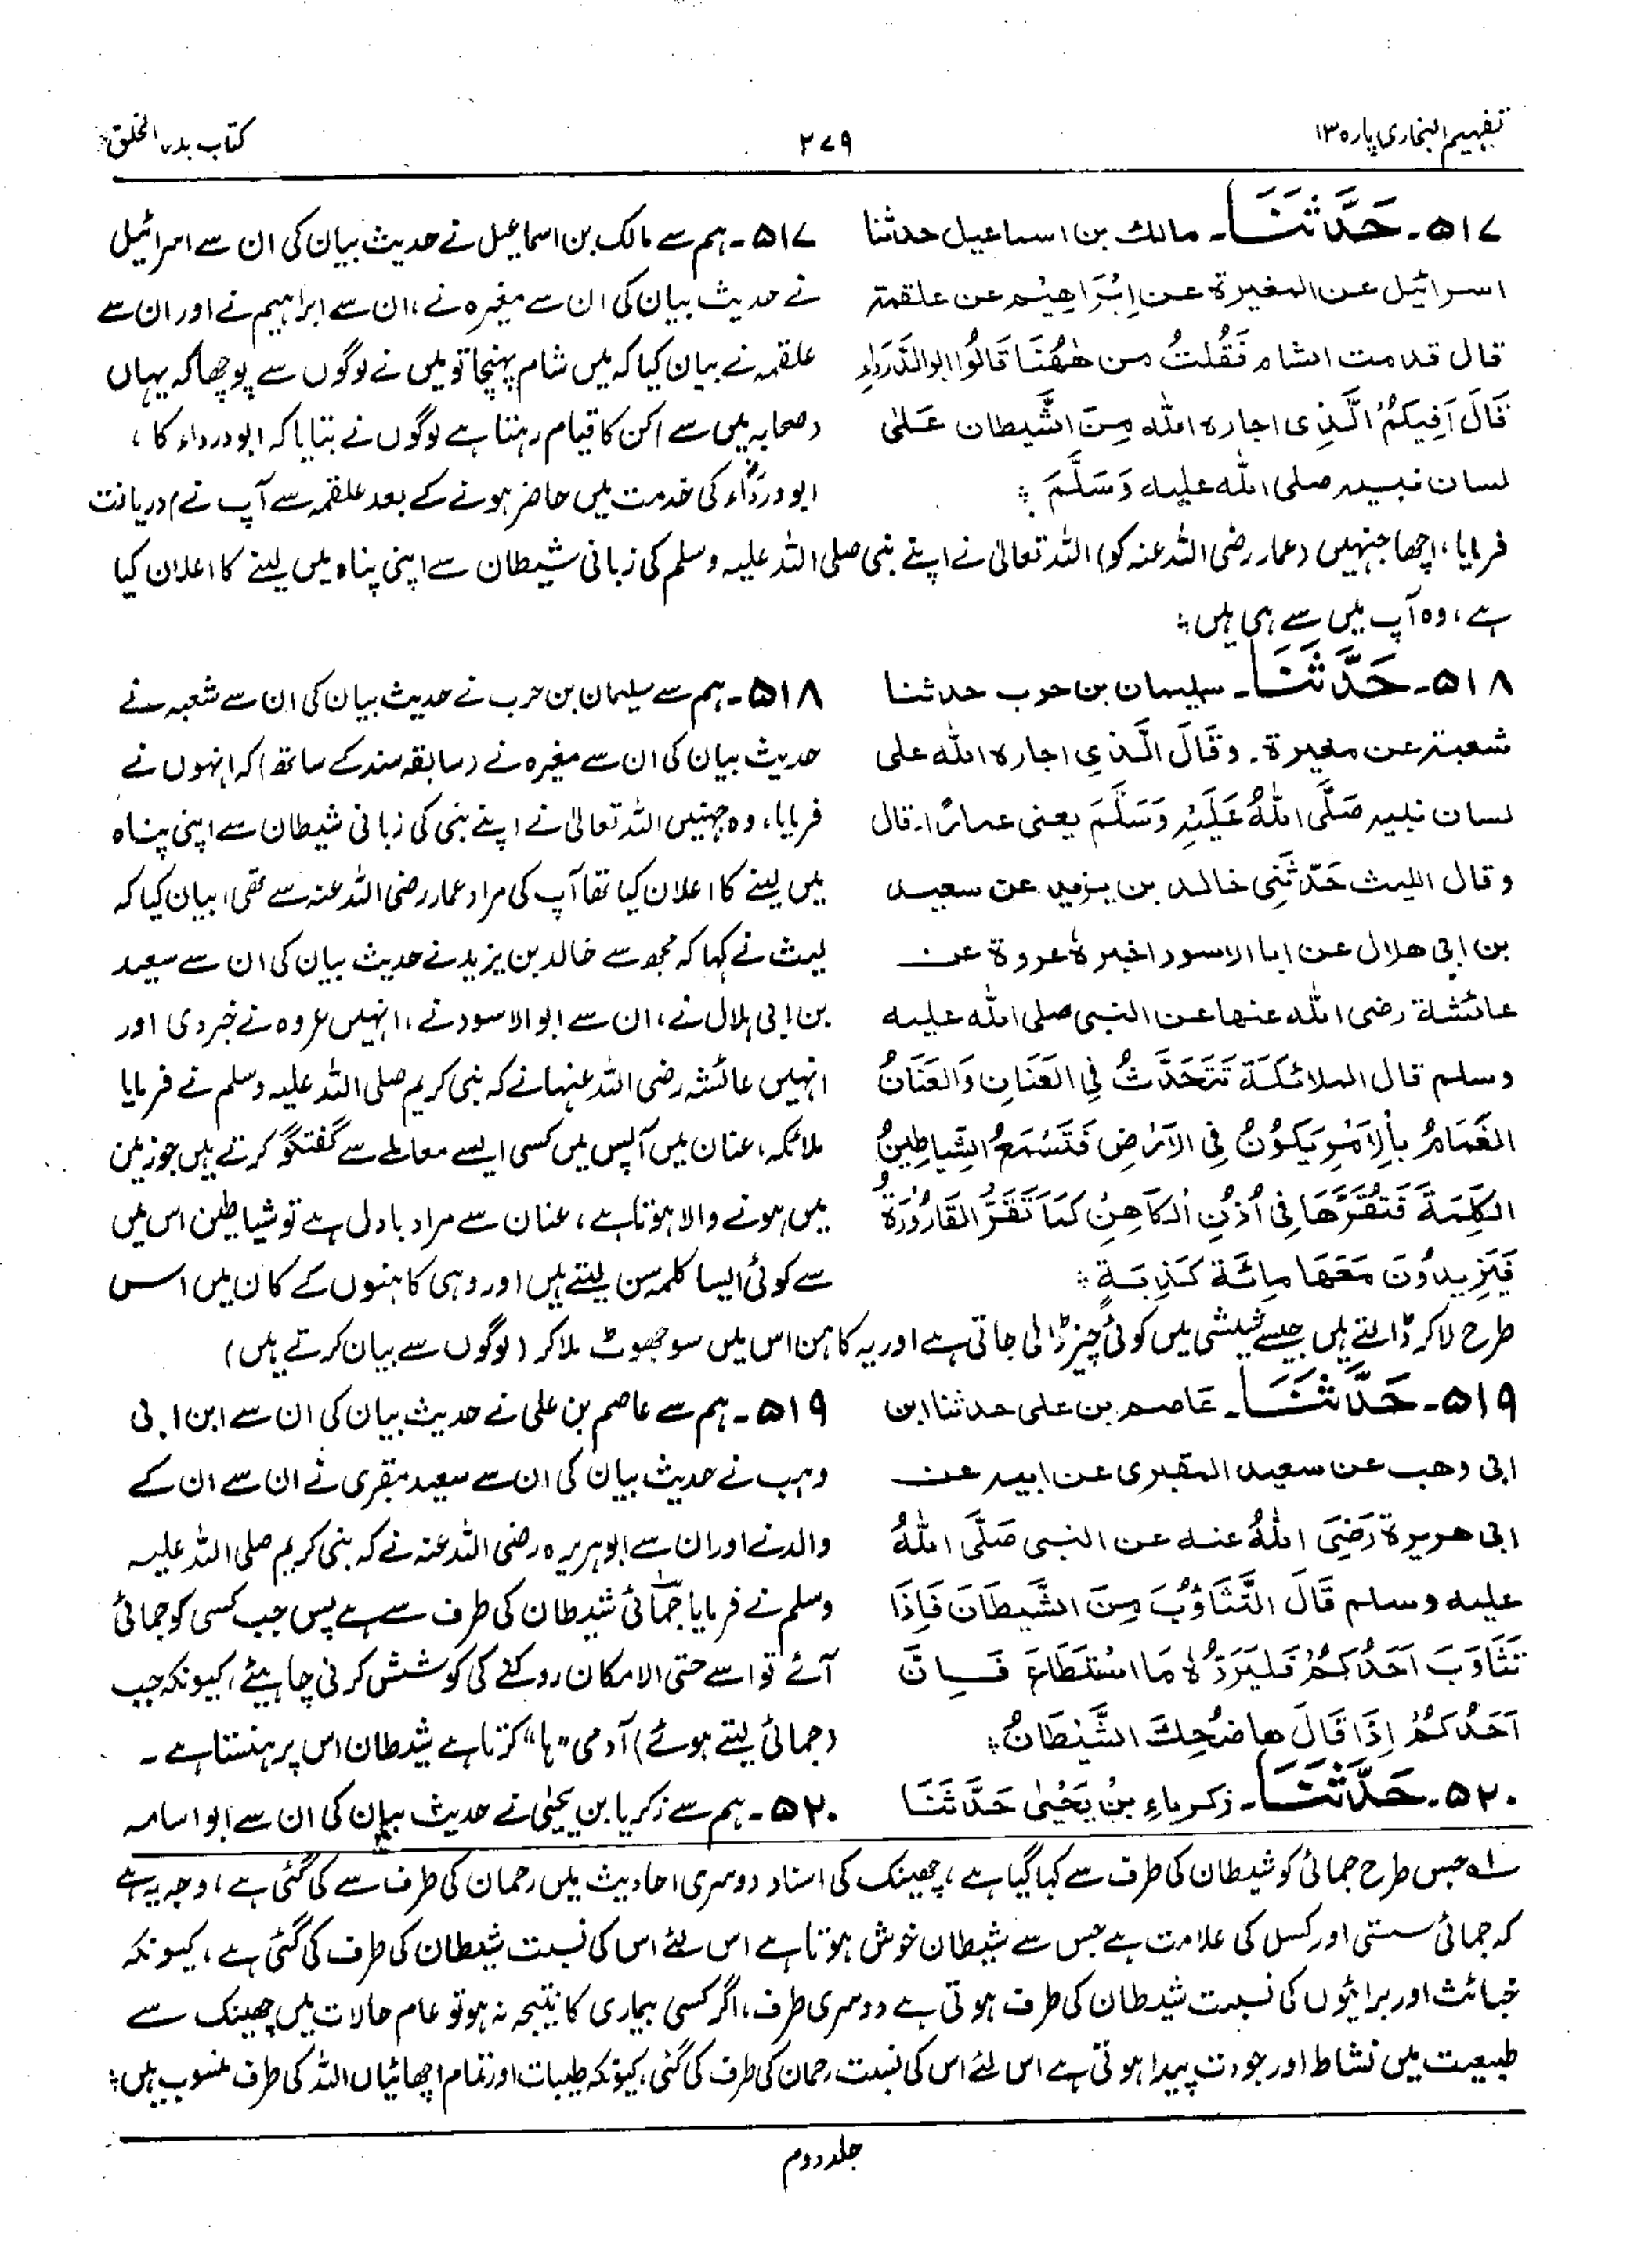 تفہیم البخاری پارہ ۱۳
۲۷۹
کتاب بدء الخلق
۵۱۷۔ حَدَّثَنَا۔ مالك بن اسماعيل حدثنا
اسرائيل عن المغيرة عن اِبْرَاهِيْم عن علقمة
قال قدمت الشام فَقُلتُ من هٰهُنَا قَالُوا ابو الدَّرَدَاءِ
قَالَ اَفِيكُمُ الَّذِى اجاره الله مِنَ الشَّيطان عَلىٰ
لسان نبيه صلى الله عليه وَسَلَّمَ ؛
۵۱۷۔ ہم سے مالک بن اسماعیل نے حدیث بیان کی ان سے اسرائیل
نے حدیث بیان کی ان سے مغیرہ نے، ان سے ابراہیم نے اور ان سے
علقمہ نے بیان کیا کہ میں شام پہنچا تو میں نے لوگوں سے پوچھا کہ یہاں
(صحابہ میں سے) کن کا قیام رہتا ہے لوگوں نے بتایا کہ ابو درداء کا،
ابو درداؓء کی خدمت میں حاضر ہونے کے بعد علقمہ سے آپ نے) دریافت
فرمایا، اچھا جنہیں (عمار رضی اللہ عنہ کو) اللہ تعالیٰ نے اپنے نبی صلی اللہ علیہ وسلم کی زبانی شیطان سے اپنی پناہ میں لینے کا اعلان کیا
ہے، وہ آپ میں سے ہی ہیں ؛
۵۱۸۔ حَدَّثَنَا۔ سليمان بن حرب حدثنا
شعبة عن مغيرة۔ وقَالَ الَّذِى اجاره الله على
لسان نبيه صَلَّى اللهُ عَلَيْهِ وَسَلَّمَ يعنى عمارًا۔ قال
وقال الليث حَدَّثَنِى خالد بن يزيد عن سعيد
بن ابى هلال عن ابا الاسود اخبرهٗ عروة عن
عائشة رضى الله عنها عن النبى صلى الله عليه
وسلم قال الملائكة تَتَحَدَّثُ فِى العَنَانِ وَالعَنَانُ
الغَمَامُ بِالاَمْرِ يَكُوْنُ فِى الاَرْضِ فَتَسْمَعُ الشَّيَاطِينُ
الكَلِمَةَ فَتُقَرُّهَا فِى اُذُنِ الكَاهِنِ كَمَا تُقَرُّ القَارُوْرَةُ
فَيَزِيدُوْنَ مَعَهَا مِائَة كَذِبَةٍ ؛
۵۱۸۔ ہم سے سلیمان بن حرب نے حدیث بیان کی ان سے شعبہ نے
حدیث بیان کی ان سے مغیرہ نے (سابقہ سند کے ساتھ) کہ انہوں نے
فرمایا، وہ جنہیں اللہ تعالیٰ نے اپنے نبی کی زبانی شیطان سے اپنی پناہ
میں لینے کا اعلان کیا تھا آپ کی مراد عمار رضی اللہ عنہ سے تھی، بیان کیا کہ
لیث نے کہا کہ مجھ سے خالد بن یزید نے حدیث بیان کی ان سے سعید
بن ابی ہلال نے، ان سے ابو الاسود نے، انہیں عروہ نے خبر دی اور
انہیں عائشہ رضی اللہ عنہا نے کہ نبی کریم صلی اللہ علیہ وسلم نے فرمایا
ملائکہ، عنان میں آپس میں کسی ایسے معاملے سے گفتگو کرتے ہیں جو زمین
میں ہونے والا ہوتا ہے، عنان سے مراد بادل ہے تو شیاطین اس میں
سے کوئی ایسا کلمہ سن لیتے ہیں اور وہی کاہنوں کے کان میں اس
طرح لا کر ڈالتے ہیں جیسے شیشی میں کوئی چیز ڈالی جاتی ہے اور یہ کاہن اس میں سو جھوٹ ملا کر (لوگوں سے بیان کرتے ہیں)
۵۱۹۔ حَدَّثَنَا۔ عَاصم بن على حدثنا ابن
ابى وهب عن سعيد المقبرى عن ابيه عن
ابى هريرة رَضِىَ اللهُ عنه عن النبى صَلَّى اللهُ
عليه وسلم قَالَ التَّثَاوُبَ مِنَ الشَّيطَانَ فَاِذَا
تَثَاوَبَ اَحَدُكُمْ فَليَرَدُّهُ مَا اسْتَطَاعَ فَاِنَّ
اَحَدُكُمْ اِذَا قَالَ ها ضُحِكَ الشَّيْطَانُ ؛
۵۱۹۔ ہم سے عاصم بن علی نے حدیث بیان کی ان سے ابن ابی
وہب نے حدیث بیان کی ان سے سعید مقبری نے ان سے ان کے
والد نے اور ان سے ابوہریرہ رضی اللہ عنہ نے کہ نبی کریم صلی اللہ علیہ
وسلم نے فرمایا جمائی شیطان کی طرف سے ہے پس جب کسی کو جمائی
آئے تو اسے حتی الامکان روکنے کی کوشش کرنی چاہیئے، کیونکہ جب
(جمائی لیتے ہوئے) آدمی "ہا" کرتا ہے شیطان اس پر ہنستا ہے۔
۵۲۰۔ حَدَّثَنَا۔ زكرياءِ بنُ يَحْيٰى حَدَّثَنَا
۵۲۰۔ ہم سے زکریا بن یحییٰ نے حدیث بیان کی ان سے ابو اسامہ
۱؎ جس طرح جمائی کو شیطان کی طرف سے کہا گیا ہے، چھینک کی اسناد دوسری احادیث میں رحمان کی طرف سے کی گئی ہے، وجہ یہ ہے
کہ جمائی سستی اور کسل کی علامت ہے جس سے شیطان خوش ہوتا ہے اس لئے اس کی نسبت شیطان کی طرف کی گئی ہے، کیونکہ
خبائث اور برائیوں کی نسبت شیطان کی طرف ہوتی ہے دوسری طرف، اگر کسی بیماری کا نتیجہ نہ ہو تو عام حالات میں چھینک سے
طبیعت میں نشاط اور جودت پیدا ہوتی ہے اس لئے اس کی نسبت رحمان کی طرف کی گئی، کیونکہ طیبات اور تمام اچھائیاں اللہ کی طرف منسوب ہیں ؛
جلد دوم